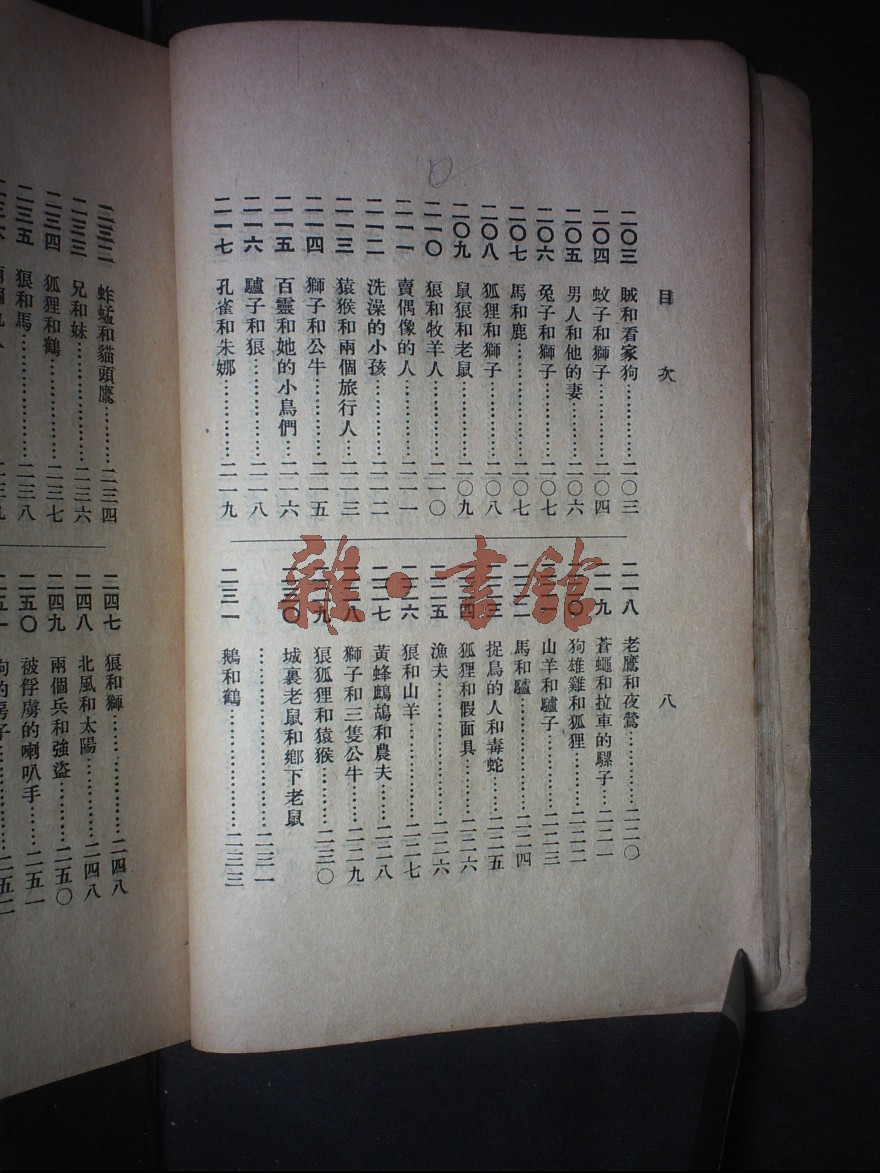 目次 八
二〇三 賊和看家狗…………二〇三
二〇四 蚊子和獅子…………二〇四
二〇五 男人和他的妻…………二〇六
二〇六 兔子和獅子…………二〇七
二〇七 馬和鹿…………二〇七
二〇八 狐狸和獅子…………二〇八
二〇九 鼠狼和老鼠…………二〇九
二一〇 狼和牧羊人…………二一〇
二一一 賣偶像的人…………二一一
二一二 洗澡的小孩…………二一二
二一三 猿猴和兩個旅行人……二一三
二一四 獅子和公牛…………二一五
二一五 百靈和她的小鳥們……二一六
二一六 驢子和狼…………二一八
二一七 孔雀和朱娜…………二一九
二一八 老鷹和夜鶯…………二二〇
二一九 蒼蠅和拉車的騾子……二二一
二二〇 狗雄雞和狐狸…………二二二
二二一 山羊和驢子…………二二三
二二二 馬和驢…………二二四
二二三 捉鳥的人和毒蛇……二二五
二二四 狐狸和假面具…………二二六
二二五 漁夫…………二二六
二二六 狼和山羊…………二二七
二二七 黃蜂鷓鴣和農夫……二二八
二二八 獅子和三隻公牛……二二九
二二九 狼狐狸和猿猴…………二三〇
二三〇 城裏老鼠和鄉下老鼠
…………二三一
二三一 鵝和鶴…………二三三
二三二 蚱蜢和貓頭鷹…………二三四
二三三 兄和妹…………二三六
二三四 狐狸和鶴…………二三七
二三五 狼和馬…………二三八
二三九
二四七 狼和獅…………二四八
二四八 北風和太陽…………二四八
二四九 兩個兵和強盜…………二五〇
二五〇 被俘虜的喇叭手……二五一
二五一
二五二
雜·書館